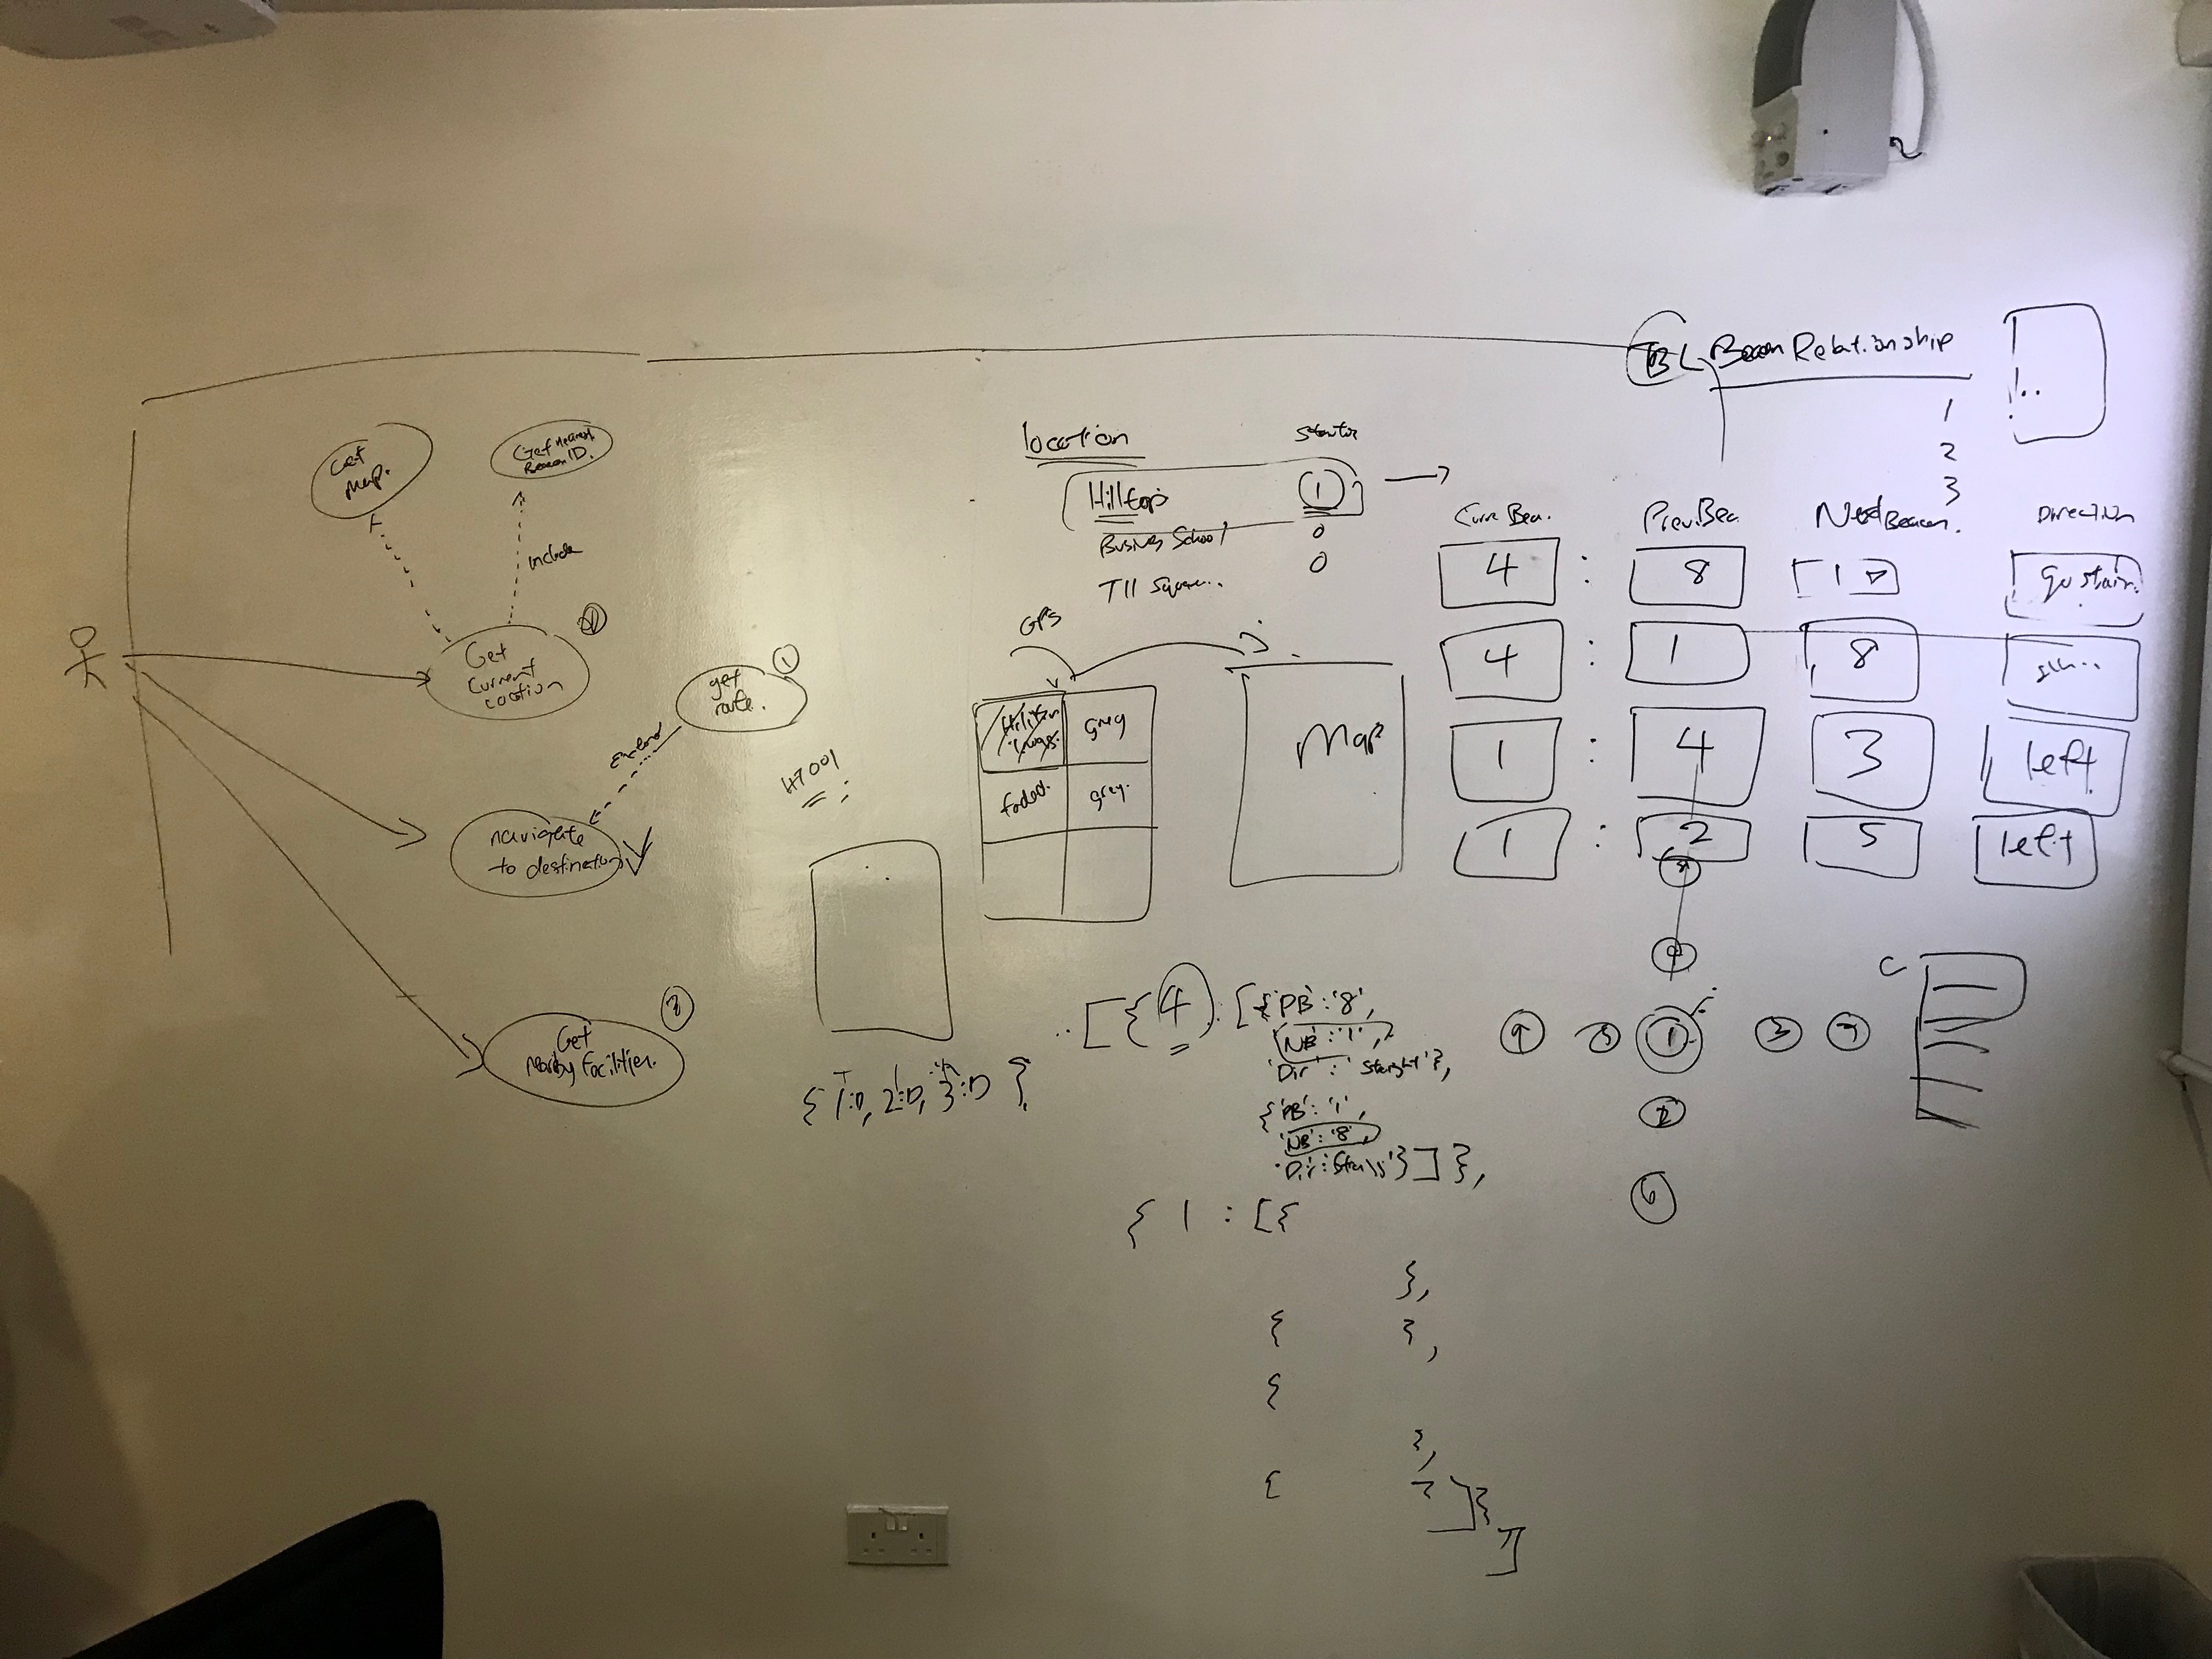 Get
Map.
Get nearest
Beacon ID.
include
Get
current
location
get
route.
1
extend
navigate
to destination
Get
Nearby Facilities.
H7001
{ 1:D, 2:D, 3:D }
location
Status
Hilltop
1
Business School
0
T11 Square..
0
GPS
grey
faded.
grey.
Map
BL
Beacon Relationship
1
2
3
Curr Bea.
Prev. Bea.
Next Beacon.
Direction
4 : 8 1
4 : 1 8
1 : 4 3 left
1 : 2 5 left
[{ 4 : [{'PB' : '8',
'NB' : '1',
'Dir' : 'Straight'},
{'PB' : '1',
'NB' : '8',
{ 1 : [{
},
{ },
{
},
{ }
]}
]
1
3
2
6
C